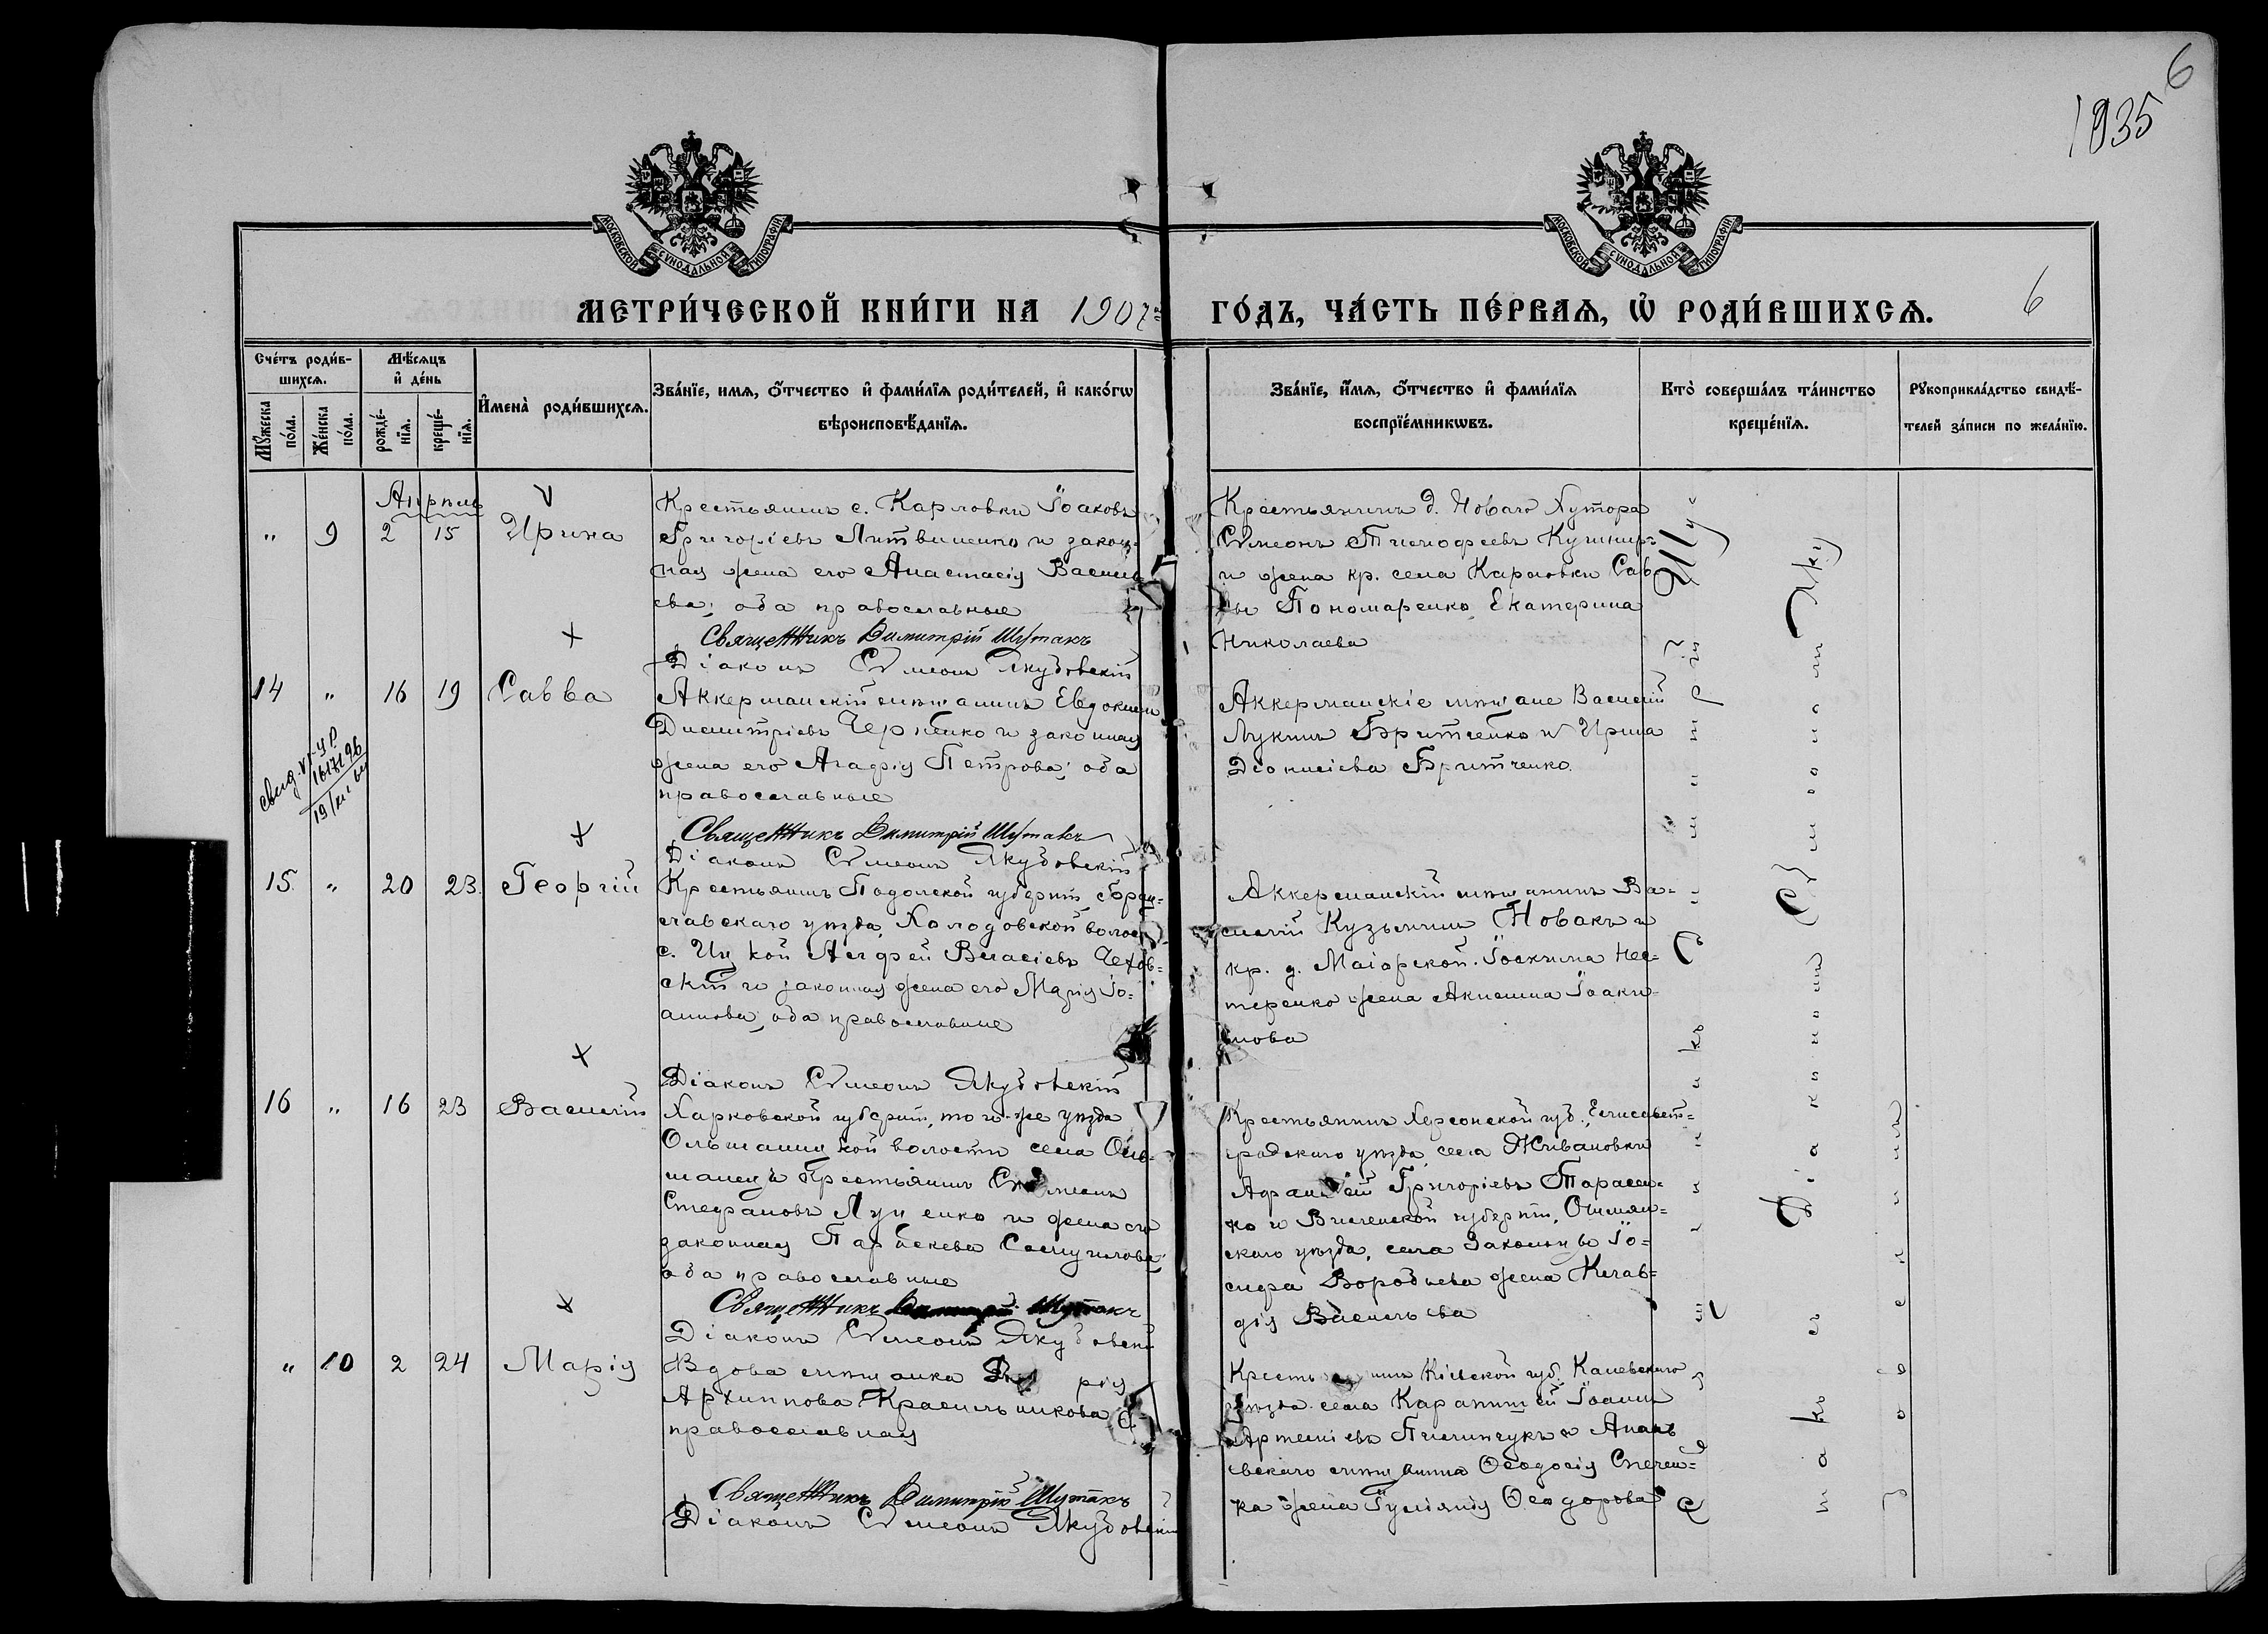 6
1935
МОСКОВСКОЙ СѴНОДАЛЬНОЙ ТИПОГРАФІИ
МОСКОВСКОЙ СѴНОДАЛЬНОЙ ТИПОГРАФІИ
МЕТРИ́ЧЕСКОЙ КНИ́ГИ НА 1907 ГО́ДЪ, ЧА́СТЬ ПЕ́РВАѦ, Ѡ҆ РОДИ́ВШИХСѦ.
6
Сче́тъ роди́в-
шихсѧ.
Мꙋ́жеска по́ла.
Же́нска по́ла.
Мѣ́сѧцъ
и҆ де́нь
рожде́-
нїѧ.
креще́-
нїѧ.
И҆мена̀ роди́вшихсѧ.
Зва́нїе, имѧ, ѻ҆́тчество и҆ фами́лїѧ роди́телей, и҆ како́гѡ
вѣроисповѣ́данїѧ.
Зва́нїе, и҆́мѧ, ѻ҆́тчество и҆ фами́лїѧ
воспрїе́мникѡвъ.
Кто̀ соверша́лъ та́инство
креще́нїѧ.
Рꙋкоприкла́дство свидѣ́-
телей за́писи по жела́нїю.
Апрѣль
" 9 2 15 Ирина
Крестьянинъ с. Карловки Іоаковъ
Григоріевъ Литвиненко и закон-
ная жена его Анастасія Василь
ева; оба православные
Священникъ Димитрій Шутакъ
Діаконъ Сѵмеонъ Якубовскій
Крестьянинъ д. Новаго Хутора
Сѵмеонъ Тимофеевъ Кушнир
и жена кр. села Карловки Сав
вы Пономаренко Екатерина
Николаева
14 " 16 19 Савва
Аккерманскій мѣщанинъ Евдоким
Димитріевъ Черненко и законная
жена его Агафія Петрова; оба
православные
Священникъ Димитрій Шутакъ
Діаконъ Сѵмеонъ Якубовскій
Аккерманскіе мѣщане Василій
Лукинъ Бритченко и Ирина
Діонисіева Бритченко.
свид. VI-УР
161796
19/XI 64
15. " 20 23. Георгій
Крестьянинъ Подольской губерніи, Брац-
славскаго уѣзда, Холодовской волос
Власіевъ Чехов-
скій и законная жена его Марія Іо-
аннова; оба православные
Діаконъ Сѵмеонъ Якубовскій
Аккерманскій мѣщанинъ Ва-
силій Кузьминъ Новакъ и
кр. д. Маіорской Іоакима Нес-
теренко жена Акилина Іоаки-
мова
16 " 16 23 Василій
Харковской губерніи, того-же уѣзда
волости села Оль-
крестьянинъ Сѵмеонъ
Стефановъ и жена его
законная Самуилова;
оба православные
Священникъ Димитрій Шутакъ
Діаконъ Сѵмеонъ Якубовскій
Крестьянинъ Херсонской губ., Елисавет-
градскаго уѣзда, села Живановки
Афанасій Григоріевъ Тарасен-
ко и Виленской губерніи, Ошмян-
скаго уѣзда, села Іо-
сифа жена Клав-
дія Васильева
" 10 2 24 Марія
Вдова мѣщанка
Архиппова Красильникова
православная
Священникъ Димитрій Шутакъ
Діаконъ Сѵмеонъ Якубовскій
Крестьянинъ Кіевской губ. Каневскаго
уѣзда села Карапишей Іоаннъ
Артеміевъ Пилипчукъ и Анань
евскаго мѣщанина Ѳеодосія
жена Іуліянія Ѳеодорова
Священникъ Димитрій Шу
такъ съ діакономъ Сѵмеономъ Яку
бовскимъ